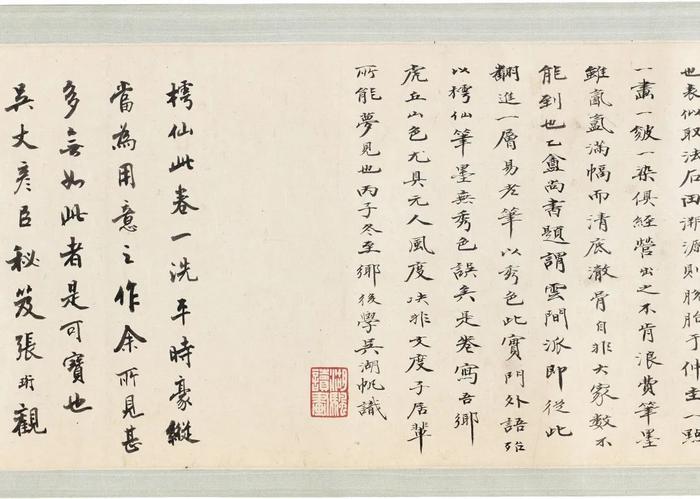 也表似取法石田渊源則胎胎于仲圭一點
一畫一皴一染俱經營出之不肯浪費筆墨
雖氤氳滿幅而清底澈骨自非大家數不
能到也乙盦尚書題謂雲間派即從此
翻進一層易老筆以秀色此實門外語殆
以樗仙筆墨無秀色誤矣是卷寫吾鄉
虎丘山色尤具元人風度决非文度子居輩
所能夢見也丙子冬至鄉後學吳湖帆識
湖颿
讀畫
樗仙此卷一洗平時豪縱
當為用意之作余所見甚
多無如此者是可寶也
吳丈彥臣秘笈張珩觀